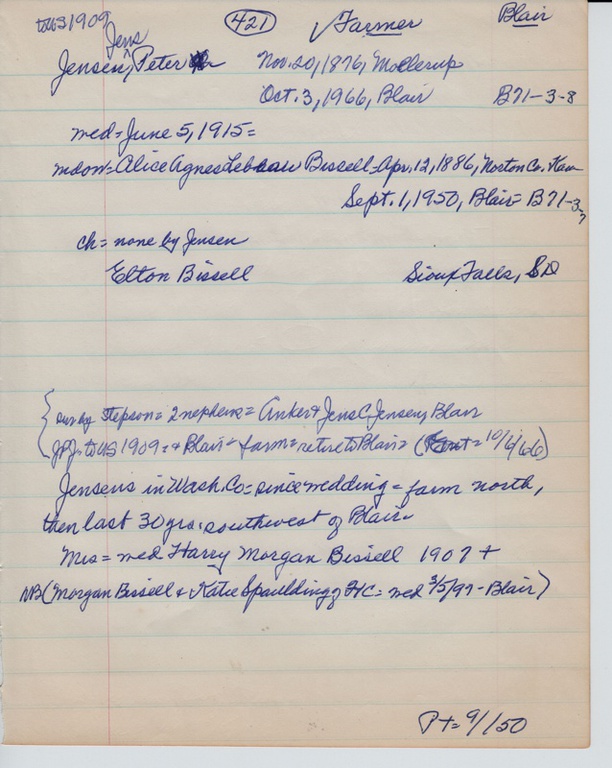 to US 1909 (421) Farmer Blair
Jens
Jensen, Peter Nov. 20, 1876, Mollerup
Oct. 3, 1966, Blair B71-3-8
med = June 5, 1915 =
= Alice Agnes Bissell = Apr. 12, 1886, Norton Co. Kan
Sept. 1, 1950, Blair = B71-3-7
ch = none by Jensen
Elton Bissell Sioux Falls, SD
sur by stepson = 2 nephews = Anker & Jens C. Jensen, Blair
JPJ. to US 1909 = + Blair = farm = retire to Blair = ( = 10/4/66)
Jensens in Wash. Co = since wedding = farm north,
then last 30 yrs. southwest of Blair.
Mrs = med Harry Morgan Bissell 1907 +
NB (Morgan Bissell & Katie Spaulding of HC = med 3/5/97 - Blair)
Pt = 9/1/50